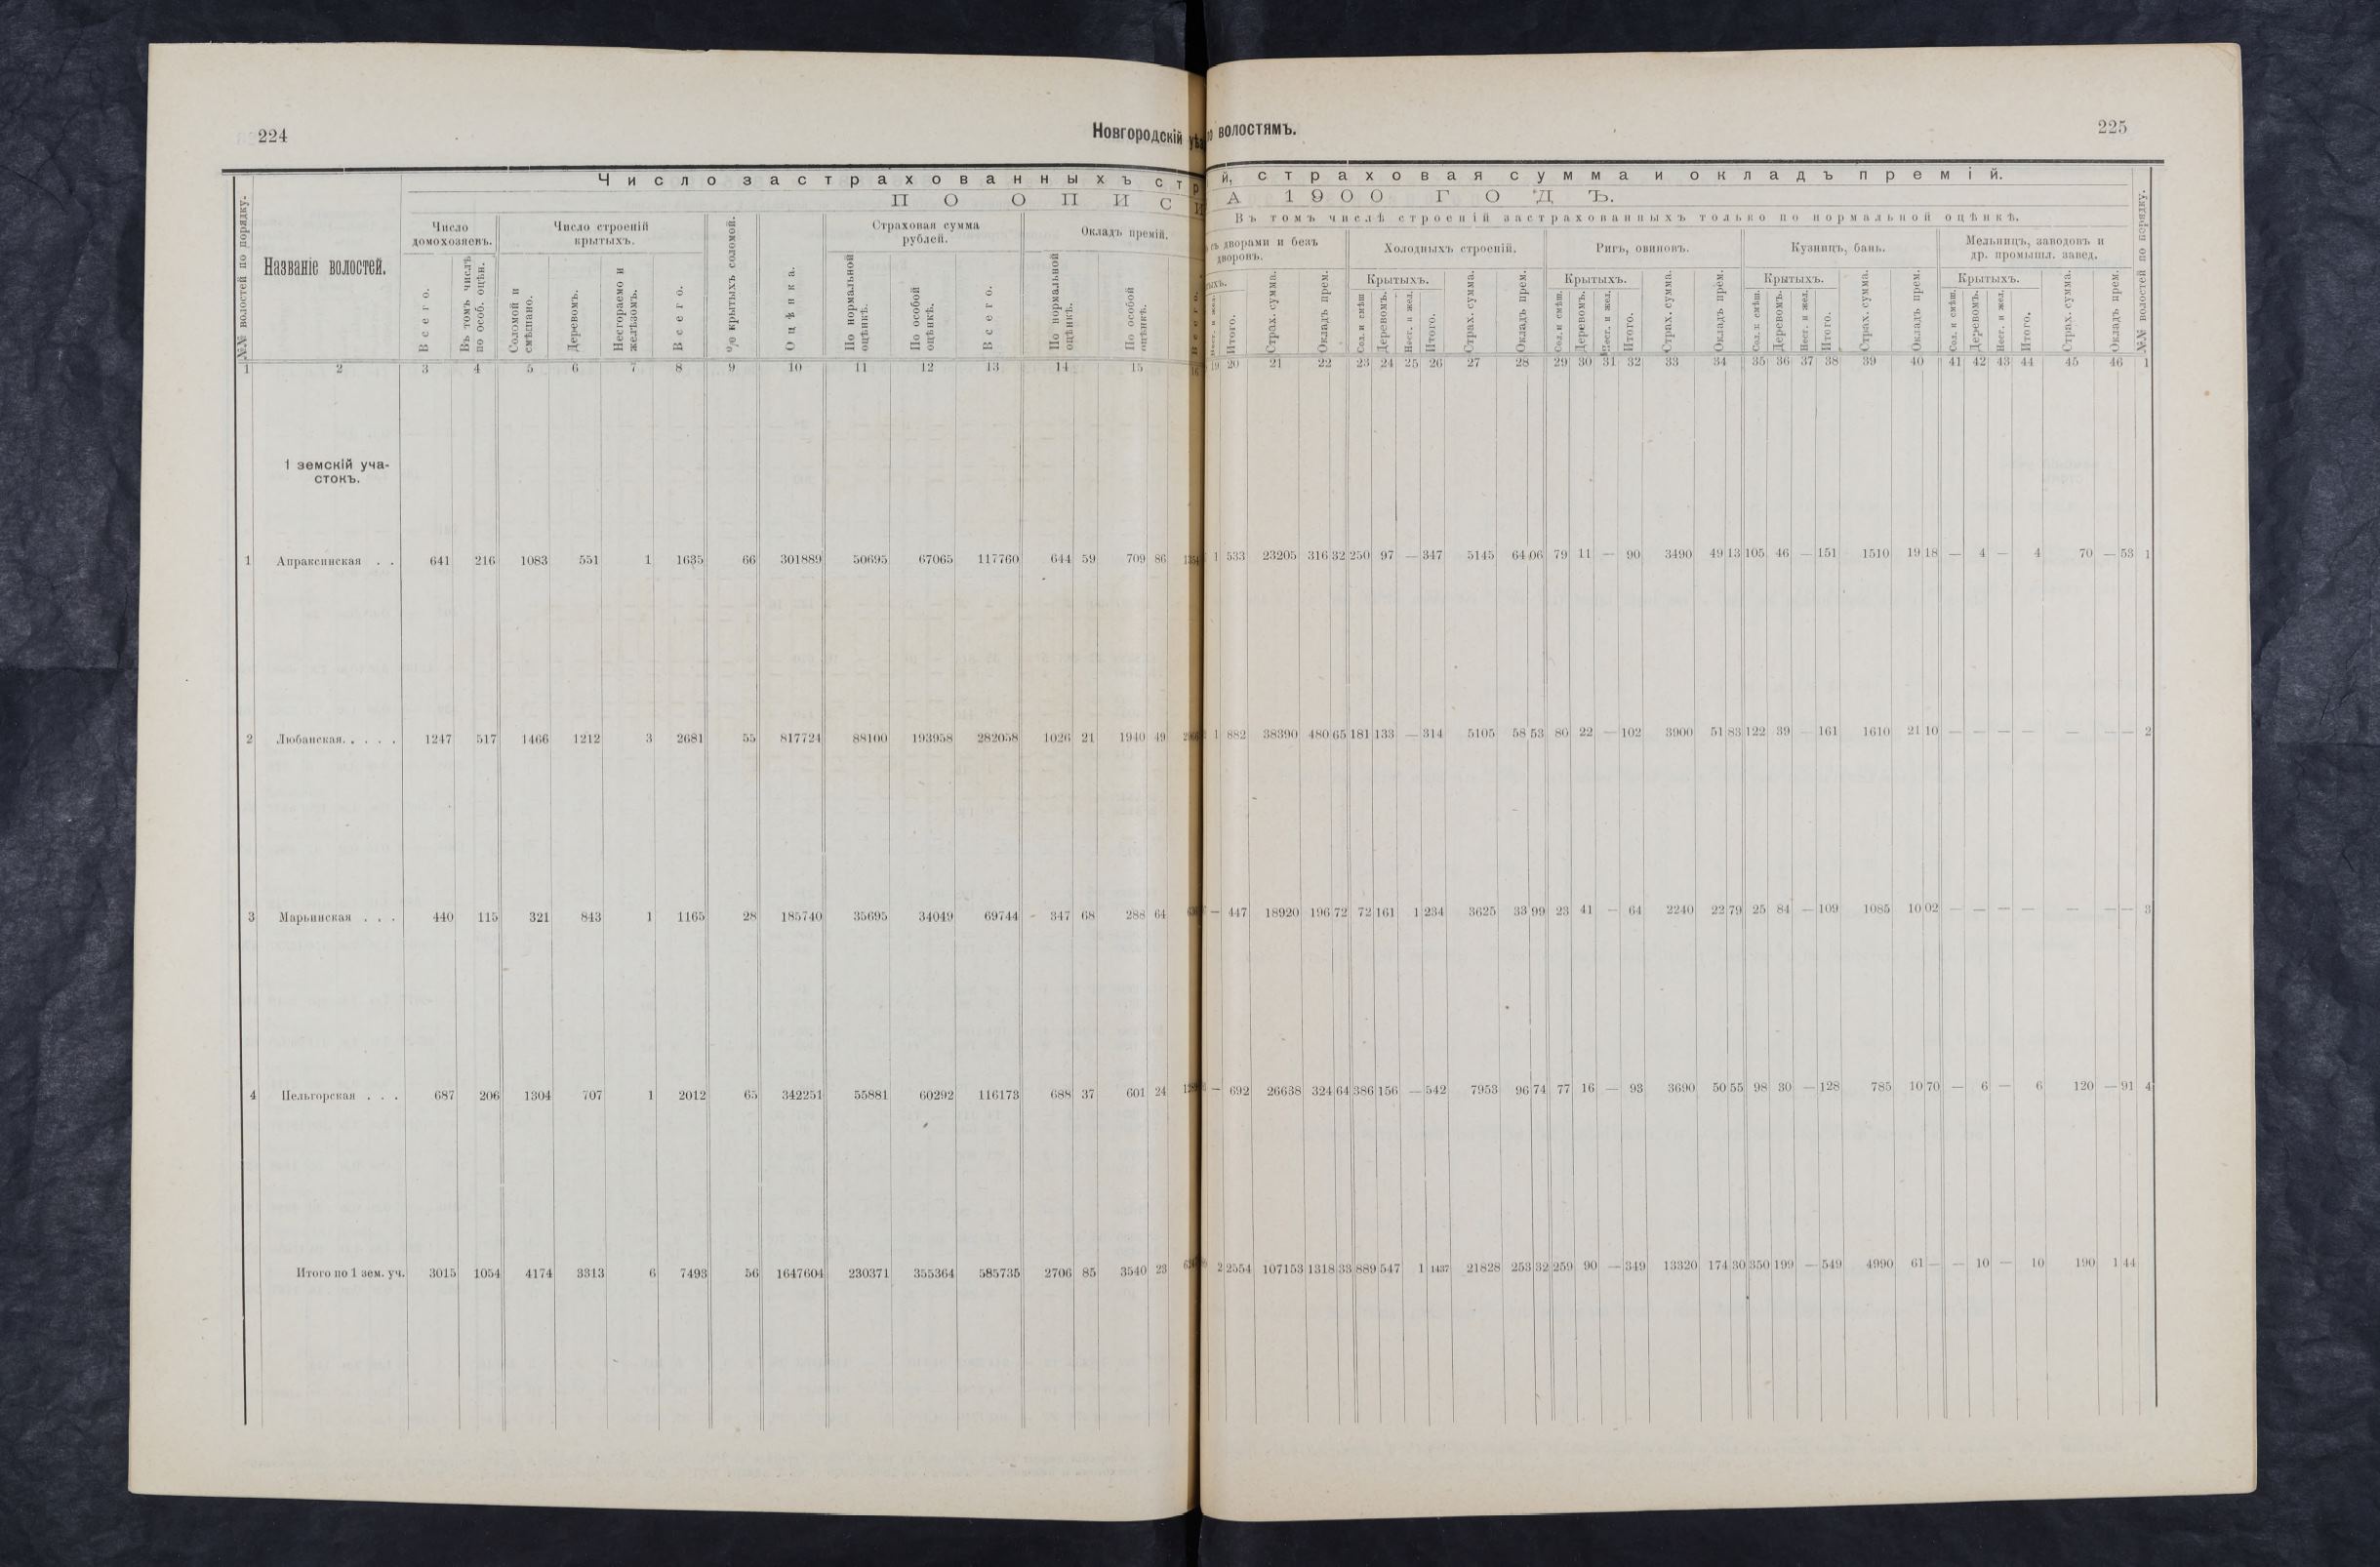 224
Новгородскій уѣз
№№ волостей по порядку.
Названіе волостей.
Число застрахованныхъ стр
ПО ОПИСИ
Число домохозяевъ.
Число строеній крытыхъ.
% крытыхъ соломой.
Оцѣнка.
Страховая сумма рублей.
Окладъ премій.
Всего.
Въ томъ числѣ по особ. оцѣн.
Соломой и смѣшано.
Деревомъ.
Несгораемо и желѣзомъ.
Всего.
По нормальной оцѣнкѣ.
По особой оцѣнкѣ.
Всего.
По нормальной оцѣнкѣ.
По особой оцѣнкѣ.
Всего.
1 2 3 4 5 6 7 8 9 10 11 12 13 14 15 16
1 земскій уча-
стокъ.
1 Апраксинская . . 641 216 1083 551 1 1635 66 301889 50695 67065 117760 644 59 709 86
2 Любанская. . . . . 1247 517 1466 1212 3 2681 55 817724 88100 193958 282058 1026 21 1940 49
3 Марьинская . . . 440 115 321 843 1 1165 28 185740 35695 34049 69744 347 68 288 64
4 Пельгорская . . . 687 206 1304 707 1 2012 65 342251 55881 60292 116173 688 37 601 24
Итого по 1 зем. уч. 3015 1054 4174 3313 6 7493 56 1647604 230371 355364 585735 2706 85 3540 23
по волостямъ.
225
й, страховая сумма и окладъ премій.
А 1900 ГОДЪ.
Въ томъ числѣ строеній застрахованныхъ только по нормальной оцѣнкѣ.
съ дворами и безъ дворовъ.
Холодныхъ строеній.
Ригъ, овиновъ.
Кузницъ, бань.
Мельницъ, заводовъ и др. промышл. завед.
№№ волостей по порядку.
тыхъ.
Несг. и жел.
Итого.
Страх. сумма.
Окладъ прем.
Крытыхъ.
Сол. и смѣш
Деревомъ.
Несг. и жел.
Итого.
Страх. сумма.
Окладъ прем.
Крытыхъ.
Сол. и смѣш.
Деревомъ.
Несг. и жел.
Итого.
Страх. сумма.
Окладъ прем.
Крытыхъ.
Сол. и смѣш.
Деревомъ.
Несг. и жел.
Итого.
Страх. сумма.
Окладъ прем.
Крытыхъ.
Сол. и смѣш.
Деревомъ.
Несг. и жел.
Итого.
Страх. сумма.
Окладъ прем.
19 20 21 22 23 24 25 26 27 28 29 30 31 32 33 34 35 36 37 38 39 40 41 42 43 44 45 46 1
1 533 23205 316 32 250 97 — 347 5145 64 06 79 11 — 90 3490 49 13 105 46 — 151 1510 19 18 — 4 — 4 70 — 53 1
1 882 38390 480 65 181 133 — 314 5105 58 53 80 22 — 102 3900 51 83 122 39 — 161 1610 21 10 — — — — — — — 2
— 447 18920 196 72 72 161 1 234 3625 33 99 23 41 — 64 2240 22 79 25 84 — 109 1085 10 02 — — — — — — — 3
— 692 26638 324 64 386 156 — 542 7953 96 74 77 16 — 93 3690 50 55 98 30 — 128 785 10 70 — 6 — 6 120 — 91 4
2 2554 107153 1318 33 889 547 1 1437 21828 253 32 259 90 — 349 13320 174 30 350 199 — 549 4990 61 — — 10 — 10 190 1 44